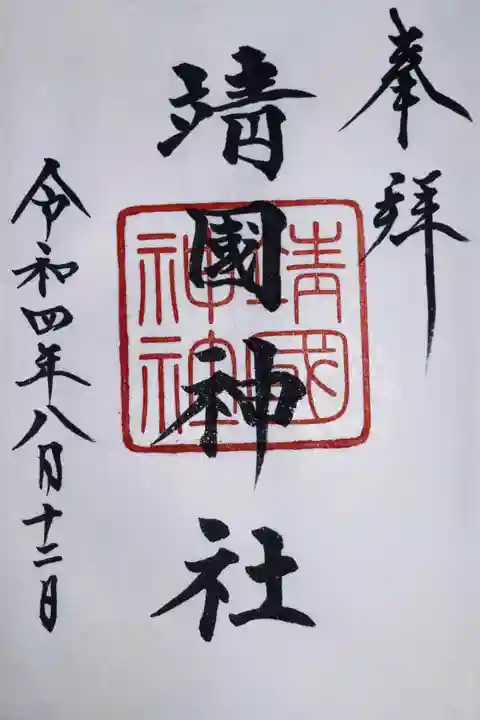 奉拝
靖國神社
靖國
神社
令和四年八月十二日